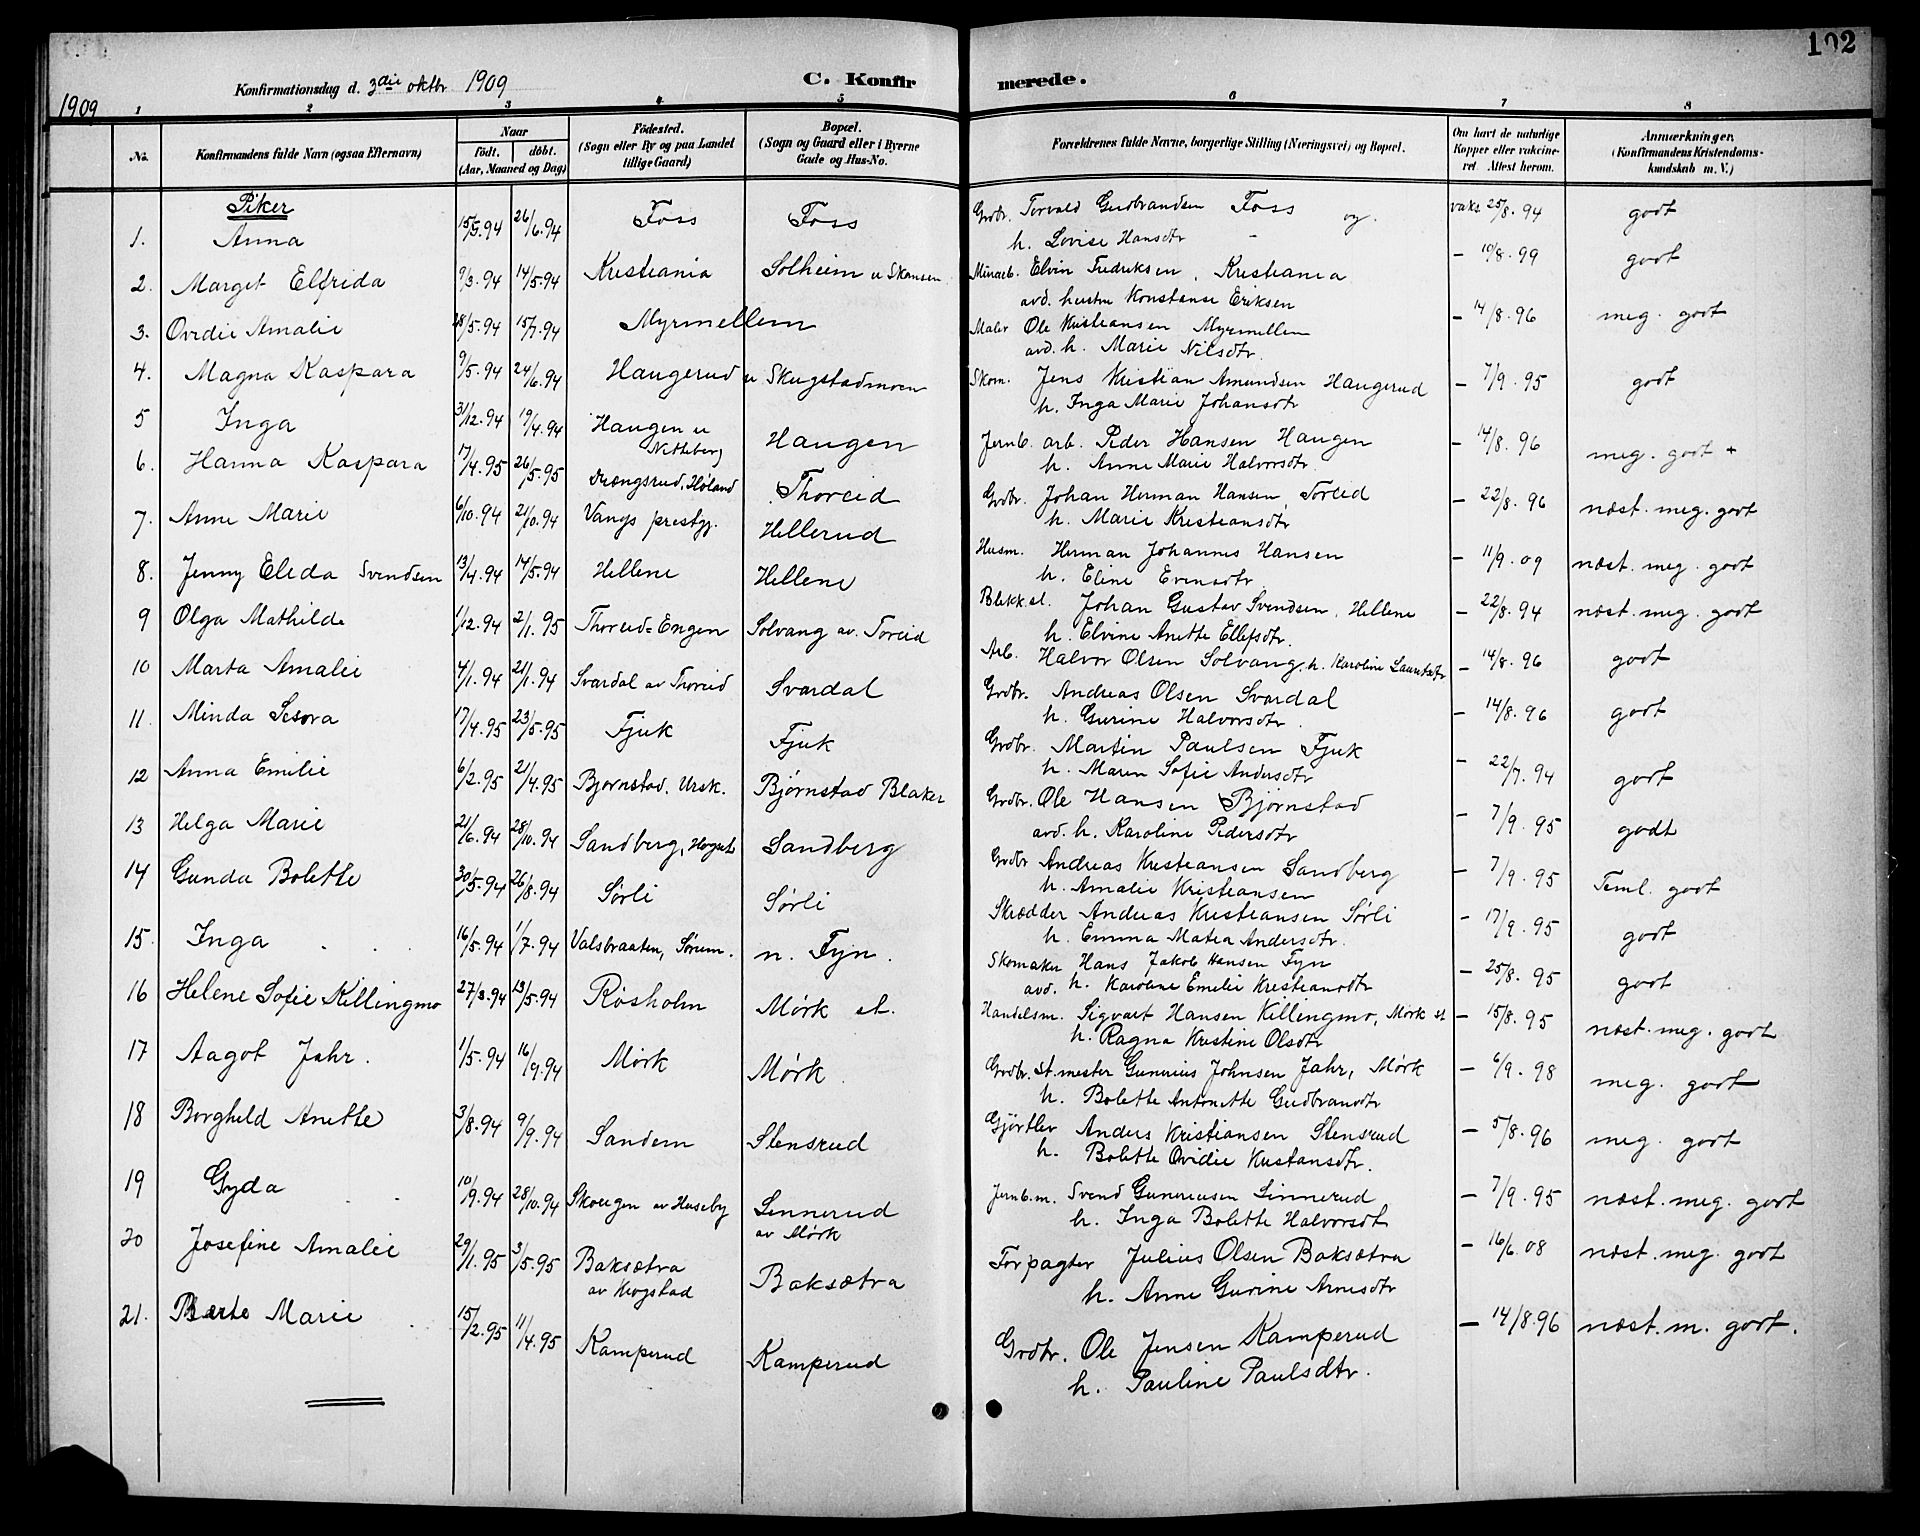 102
Konfirmationsdag d. 3die oktbr 1909
C. Konfirmerede.
1909
1 2 3 4 5 6 7 8
No.
Konfirmandens fulde Navn (ogsaa Efternavn)
Naar
födt. döbt.
(Aar, Maaned og Dag)
Födested.
(Sogn eller By og paa Landet
tillige Gaard)
Bopæl.
(Sogn og Gaard eller i Byerne
Gade og Hus-No.
Forældrenes fulde Navne, borgerlige Stilling (Næringsvei) og Bopæl.
Om havt de naturlige
Kopper eller vakcine-
ret. Attest herom.
Anmærkninger,
(Konfirmandens Kristendoms-
kundskab m. V.)
Piker
1. Anna 15/5.94 26/6.94 Foss Foss Grdbr. Torvald Gudbrandsen Foss og. vaks 25/8.94 godt
h. Lovise Hansdtr -
2. Marget Elfrida 9/3.94 14/5.94 Kristiania Solheim u Skansen Minarb. Elvin Fredriksen, Kristiania - 10/8.99 godt
avd. hustru Konstanse Eriksen
3. Ovidie Amalie 28/5.94 15/7.94 Myrmellem Maler Ole Kristiansen Myrmellem - 14/8.96 meg. godt
avd. h. Marie Nilsdtr.
4. Magna Kaspara 9/5.94 24/6.94 Haugerud u Skugstadmoen Skom. Jens Kristian Amundsen Haugerud - 7/9.95 godt
h. Inga Marie Johansdtr
5 Inga 31/12.94 19/4.94 Haugen u Nitteberg Haugen Jernb. arb. Peder Hansen Haugen - 14/8.96 meg. godt +
h. Anne Marie Halvorsdtr
6. Hanna Kaspara 17/4.95 26/5.95 Drængsrud, Høland Thoreid Grdbr. Johan Herman Hansen Toreid - 22/8.96 næst. meg. godt
h. Marie Kristiansdtr
7. Anne Marie 6/10.94 21/10.94 Vangs prestgj. Hellerud Husm. Herman Johannes Hansen - 11/9.09 næst. meg. godt
h. Eline Evensdtr
8. Jenny Elida Svendsen 13/4.94 14/5.94 Hellene Hellene Blekksl. Johan Gustav Svendsen, Hellene - 22/8.94 næst. meg. godt
h. Elvine Anette Ellefsdtr.
9 Olga Mathilde 1/12.94 2/1.95 Thoreid-Engen Solvang av Toreid Arb. Halvor Olsen Solvang, h. Karoline Lauritsdtr - 14/8.96 godt
10 Marta Amalie 4/1.94 21/1.94 Svardal av Thoreid Svardal Grdbr. Andreas Olsen Svardal - 14/8.96 godt
h. Gurine Halvorsdtr
11. Minda Sesora 17/4.95 23/5.95 Fjuk Fjuk Grdbr. Martin Paulsen Fjuk - 22/7.94 godt
h. Maren Sofie Andersdtr
12 Anna Emilie 6/2.95 21/4.95 Bjørnstad, Ursk. Bjørnstad Blaker Grdbr. Ole Hansen Bjørnstad - 7/9.95 godt
avd. h. Karoline Pedersdtr
13 Helga Marie 21/6.94 28/10.94 Sandberg, Sandberg Grdbr Andreas Kristiansen Sandberg - 7/9.95 Teml. godt
h. Amalie Kristiansen
14 Gunda Bolette 30/5.94 26/8.94 Sørli Sørli Skrædder Andreas Kristiansen Sørli - 17/9.95 godt
h. Emma Matea Andersdtr.
15. Inga 16/5.94 1/7.94 Valsbraaten, Sørum. n. Fyn. Skomaker Hans Jakob Hansen Fyn - 25/8.95 godt
avd. h. Karoline Emilie Kristiansdtr
16 Helene Sofie Killingmo 27/3.94 13/5.94 Røsholm Mørk st. Handelsm. Sigvart Hansen Killingmo, Mørk st - 15/8.95 næst. meg. godt
h. Ragna Kristine Olsdtr
17 Aagot Jahr. 1/5.94 16/9.94 Mørk Mørk Grdbr. st. mester Gunerius Johnsen Jahr, Mørk - 6/9.98 meg. godt
h. Bolette Antonette Gudbransdtr
18 Borghild Anette 3/8.94 9/9.94 Sandem Stensrud Gjørtler Anders Kristiansen Stensrud - 5/8.96 meg. godt
h. Bolette Ovidie Kristiansdtr.
19 Gyda 10/9.94 28/10.94 Skougen av Huseby Linnerud av Mørk Jernb.m. Svend Gunerusen Linnerud - 7/9.95 næst. meg. godt
h. Inga Bolette Halvorsdt
20 Josefine Amalie 29/1.95 3/5.95 Baksætra av Krogstad Baksætra Forpagter Julius Olsen Baksætra - 16/6.08 næst. meg. godt
h. Anne Gurine Arnesdtr
21. Berte Marie 15/2.95 11/4.95 Kamperud Kamperud Grdbr. Ole Jensen Kamperud - 14/8.96 næst. m. godt.
h. Pauline Paulsdtr.